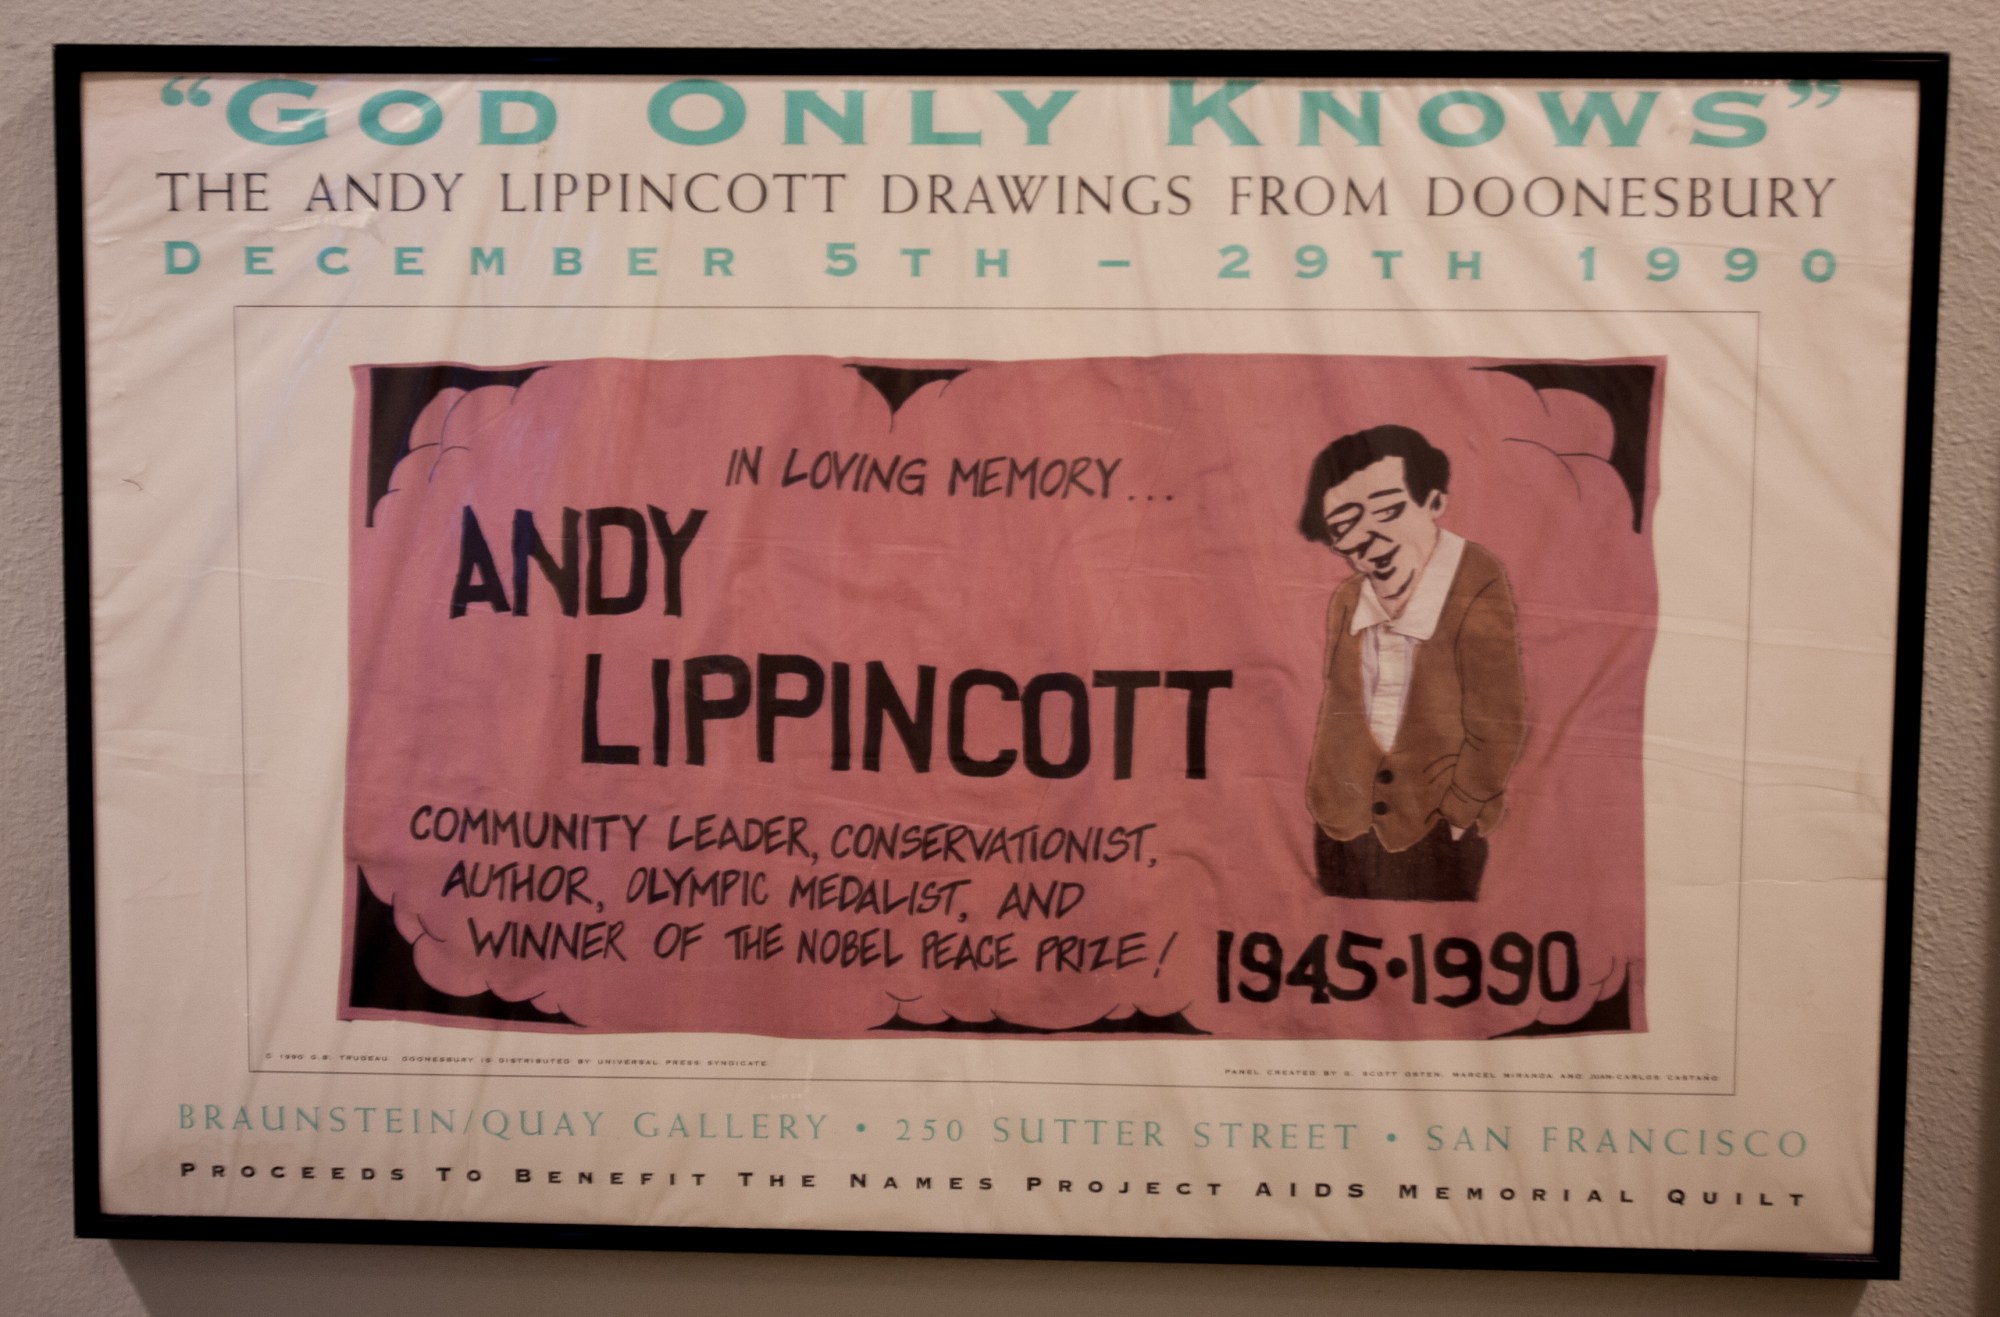 “GOD ONLY KNOWS”
THE ANDY LIPPINCOTT DRAWINGS FROM DOONESBURY
DECEMBER 5TH – 29TH 1990
IN LOVING MEMORY...
ANDY
LIPPINCOTT
COMMUNITY LEADER, CONSERVATIONIST,
AUTHOR, OLYMPIC MEDALIST, AND
WINNER OF THE NOBEL PEACE PRIZE!
1945•1990
© 1990 G.B. TRUDEAU DOONESBURY IS DISTRIBUTED BY UNIVERSAL PRESS SYNDICATE
PANEL CREATED BY G. SCOTT OSTEN, MARCEL MIRANDA AND JUAN-CARLOS CASTAÑO
BRAUNSTEIN/QUAY GALLERY • 250 SUTTER STREET • SAN FRANCISCO
PROCEEDS TO BENEFIT THE NAMES PROJECT AIDS MEMORIAL QUILT